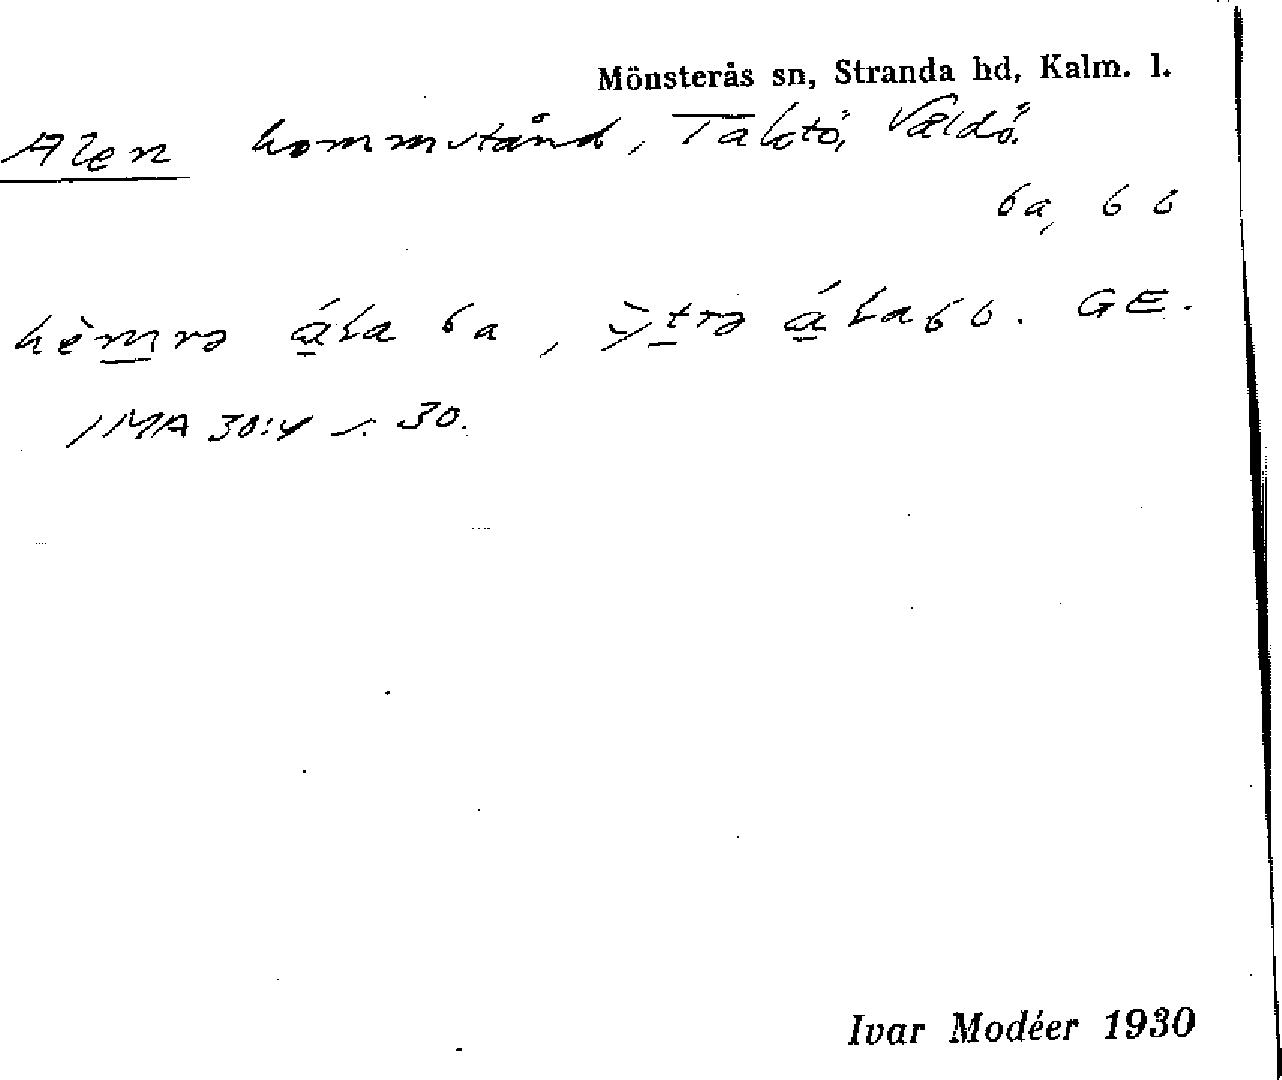 Mönsterås sn, Stranda hd, Kalm. l.
Alen kommstånd, Taktö, Valdö.
6a, 6b
hèmrə áLa 6a, ỳtrə áLa 6b. GE.
IMA 30:4 s. 30.
Ivar Modéer 1930